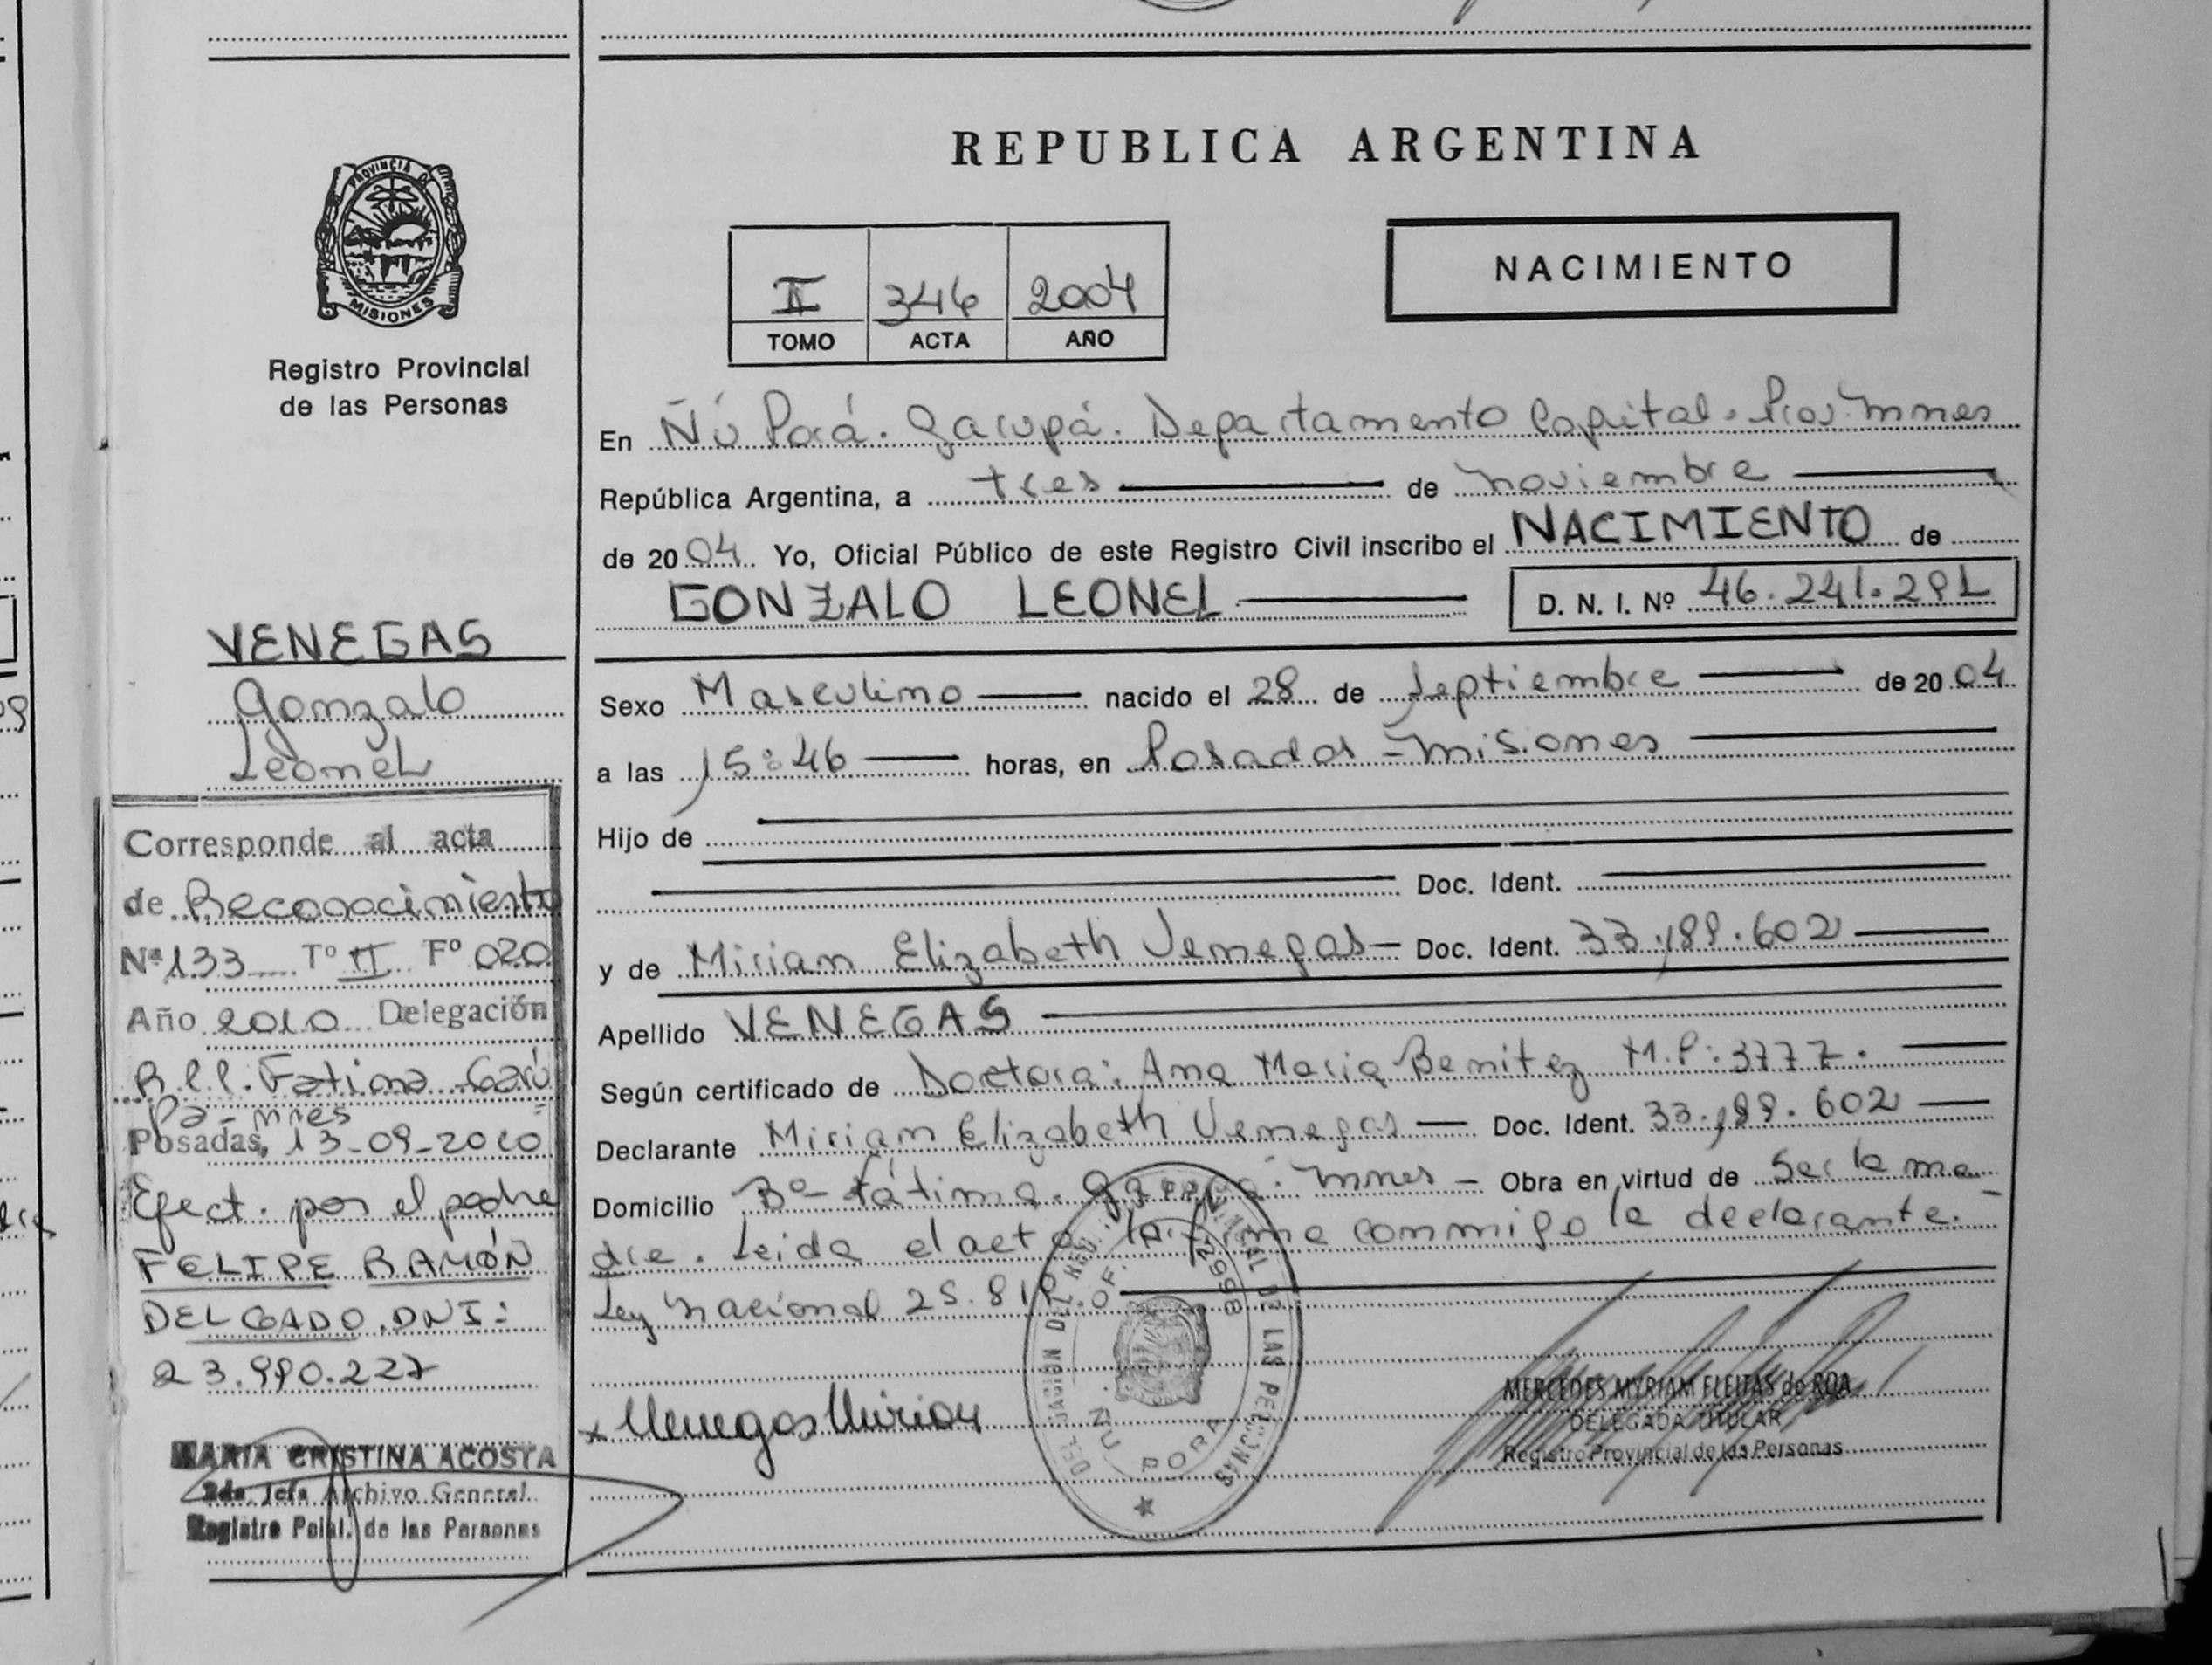 PROVINCIA DE
MISIONES
Registro Provincial
de las Personas
VENEGAS
Gonzalo
Leonel
Corresponde al acta
de Reconocimiento
Nº 133 Tº II Fº 020
Año 2010 Delegación
R.P.P. Fatima Garu
pa - mnes
Posadas, 13-09-2010
Efect. por el padre
FELIPE RAMÓN
DELGADO. DNI:
23.990.227
MARIA CRISTINA ACOSTA
2da. Jefa Archivo General
Registro Pcial. de las Personas
REPUBLICA ARGENTINA
II 346 2004
TOMO ACTA AÑO
NACIMIENTO
En Ñú Porá. Garupá. Departamento Capital. Prov. Mnes
República Argentina, a tres de noviembre
de 2004 Yo, Oficial Público de este Registro Civil inscribo el NACIMIENTO de
GONZALO LEONEL D. N. I. Nº 46.241.291
Sexo Masculino nacido el 28 de septiembre de 2004
a las 15:46 horas, en Posadas - Misiones
Hijo de
Doc. Ident.
y de Mirian Elizabeth Venegas - Doc. Ident. 33.189.602
Apellido VENEGAS
Según certificado de Doctora: Ana Maria Benitez M.P: 3777.
Declarante Mirian Elizabeth Venegas - Doc. Ident. 33.189.602
Domicilio Bº Fátima. Garupá. Mnes - Obra en virtud de ser la ma
dre. Leida el acta la firma conmigo la declarante.
Ley Nacional 25.819.
x Venegas Mirian
OF. 2998
ÑU PORA
DE LAS PERSONAS
MERCEDES MYRIAM FLEITAS de ROA
DELEGADA TITULAR
Registro Provincial de las Personas